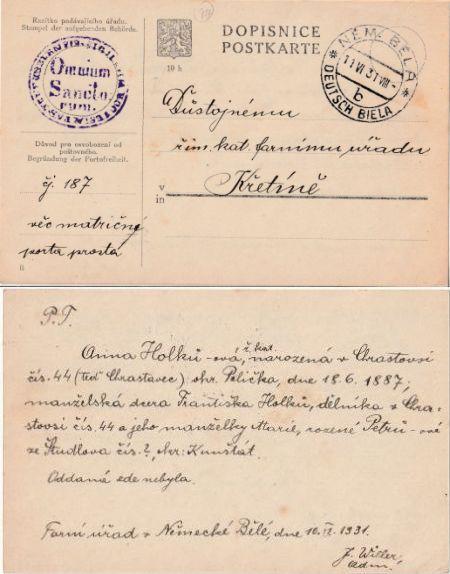 Razítko podávajícího úřadu.
Stempel der aufgebenden Behörde.
Omnium
Sancto
rum.
10 h
DOPISNICE
POSTKARTE
NĚM. BĚLÁ
11 VI 31 VIII
b
DEUTSCH BIELA
Důstojnému
řím. kat. farnímu úřadu
v
in
Křetíně
Důvod pro osvobození od
poštovného.
Begründung der Portofreiheit.
čj. 187
věc matričná
porta prosta
P.T.
Anna Holků-ová, ř. kat., narozená v Chrastovsi
čís. 44 (teď Chrastavec) okr. Polička, dne 18.6. 1887,
manželská dcera Františka Holků, dělníka z Chra-
stovsi čís. 44 a jeho manželky Marie, rozené Petrů-ové
ze Študlova čís. ?, okr. Kunštát.
Oddaná zde nebyla.
Farní úřad v Německé Bělé, dne 10. VI. 1931.
J. Willer,
adm.